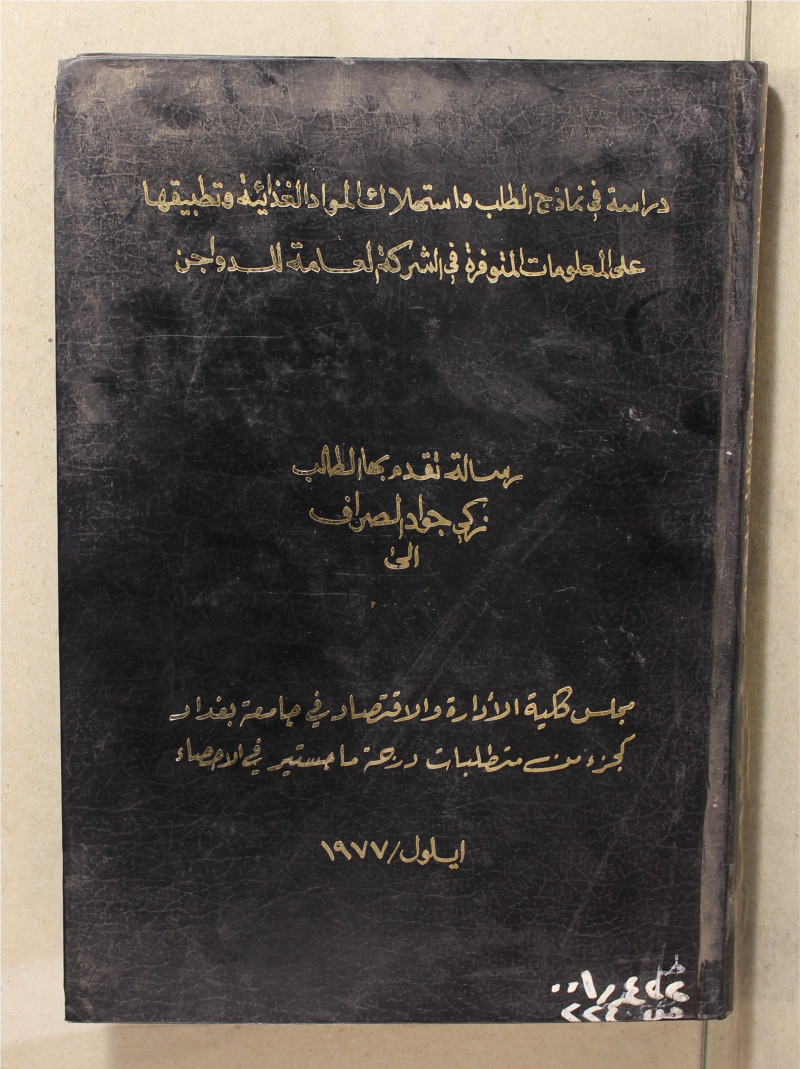 دراسة في نماذج الطلب واستهلاك المواد الغذائية وتطبيقها
على المعلومات المتوفرة في الشركة العامة للدواجن
رسالة تقدم بها الطالب
زكي جواد الصراف
الى
مجلس كلية الأدارة والاقتصاد في جامعة بغداد
كجزء من متطلبات درجة ماجستير في الاحصاء
ايلول/١٩٧٧